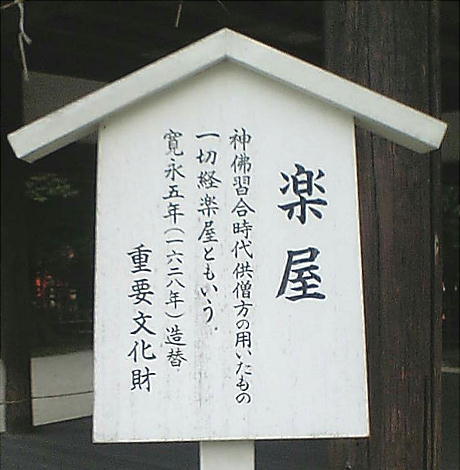 楽屋
神佛習合時代供僧方の用いたもの
一切経楽屋ともいう.
寛永五年(一六二八年)造替
重要文化財